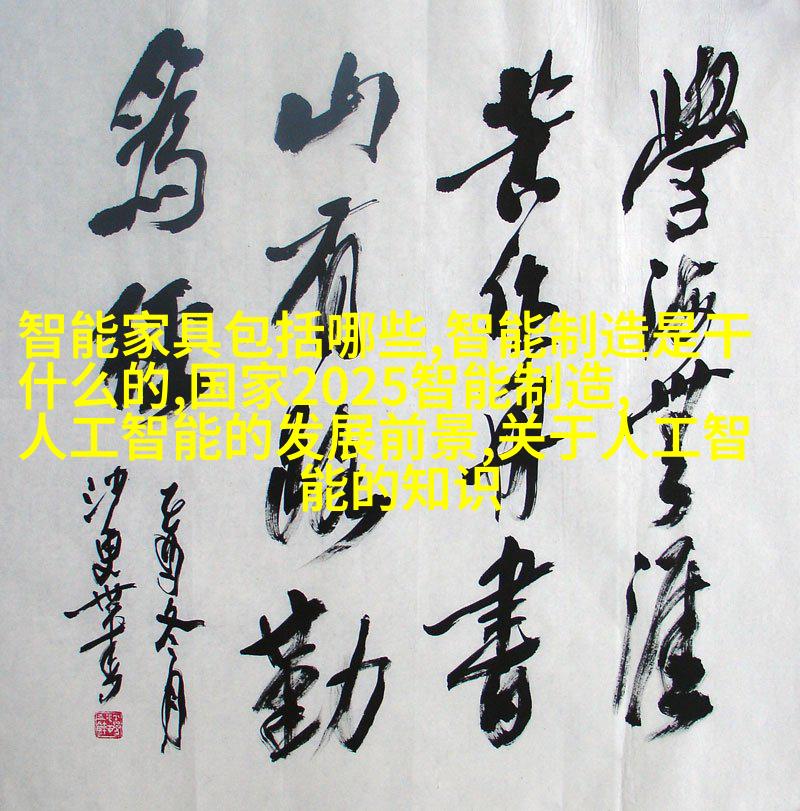 學海無涯
苦作舟書
山有路勤
為徑
乙酉冬月
沙更世書
智能家具包括哪些,智能制造是干
什么的,国家2025智能制造,
人工智能的发展前景,关于人工智
能的知识